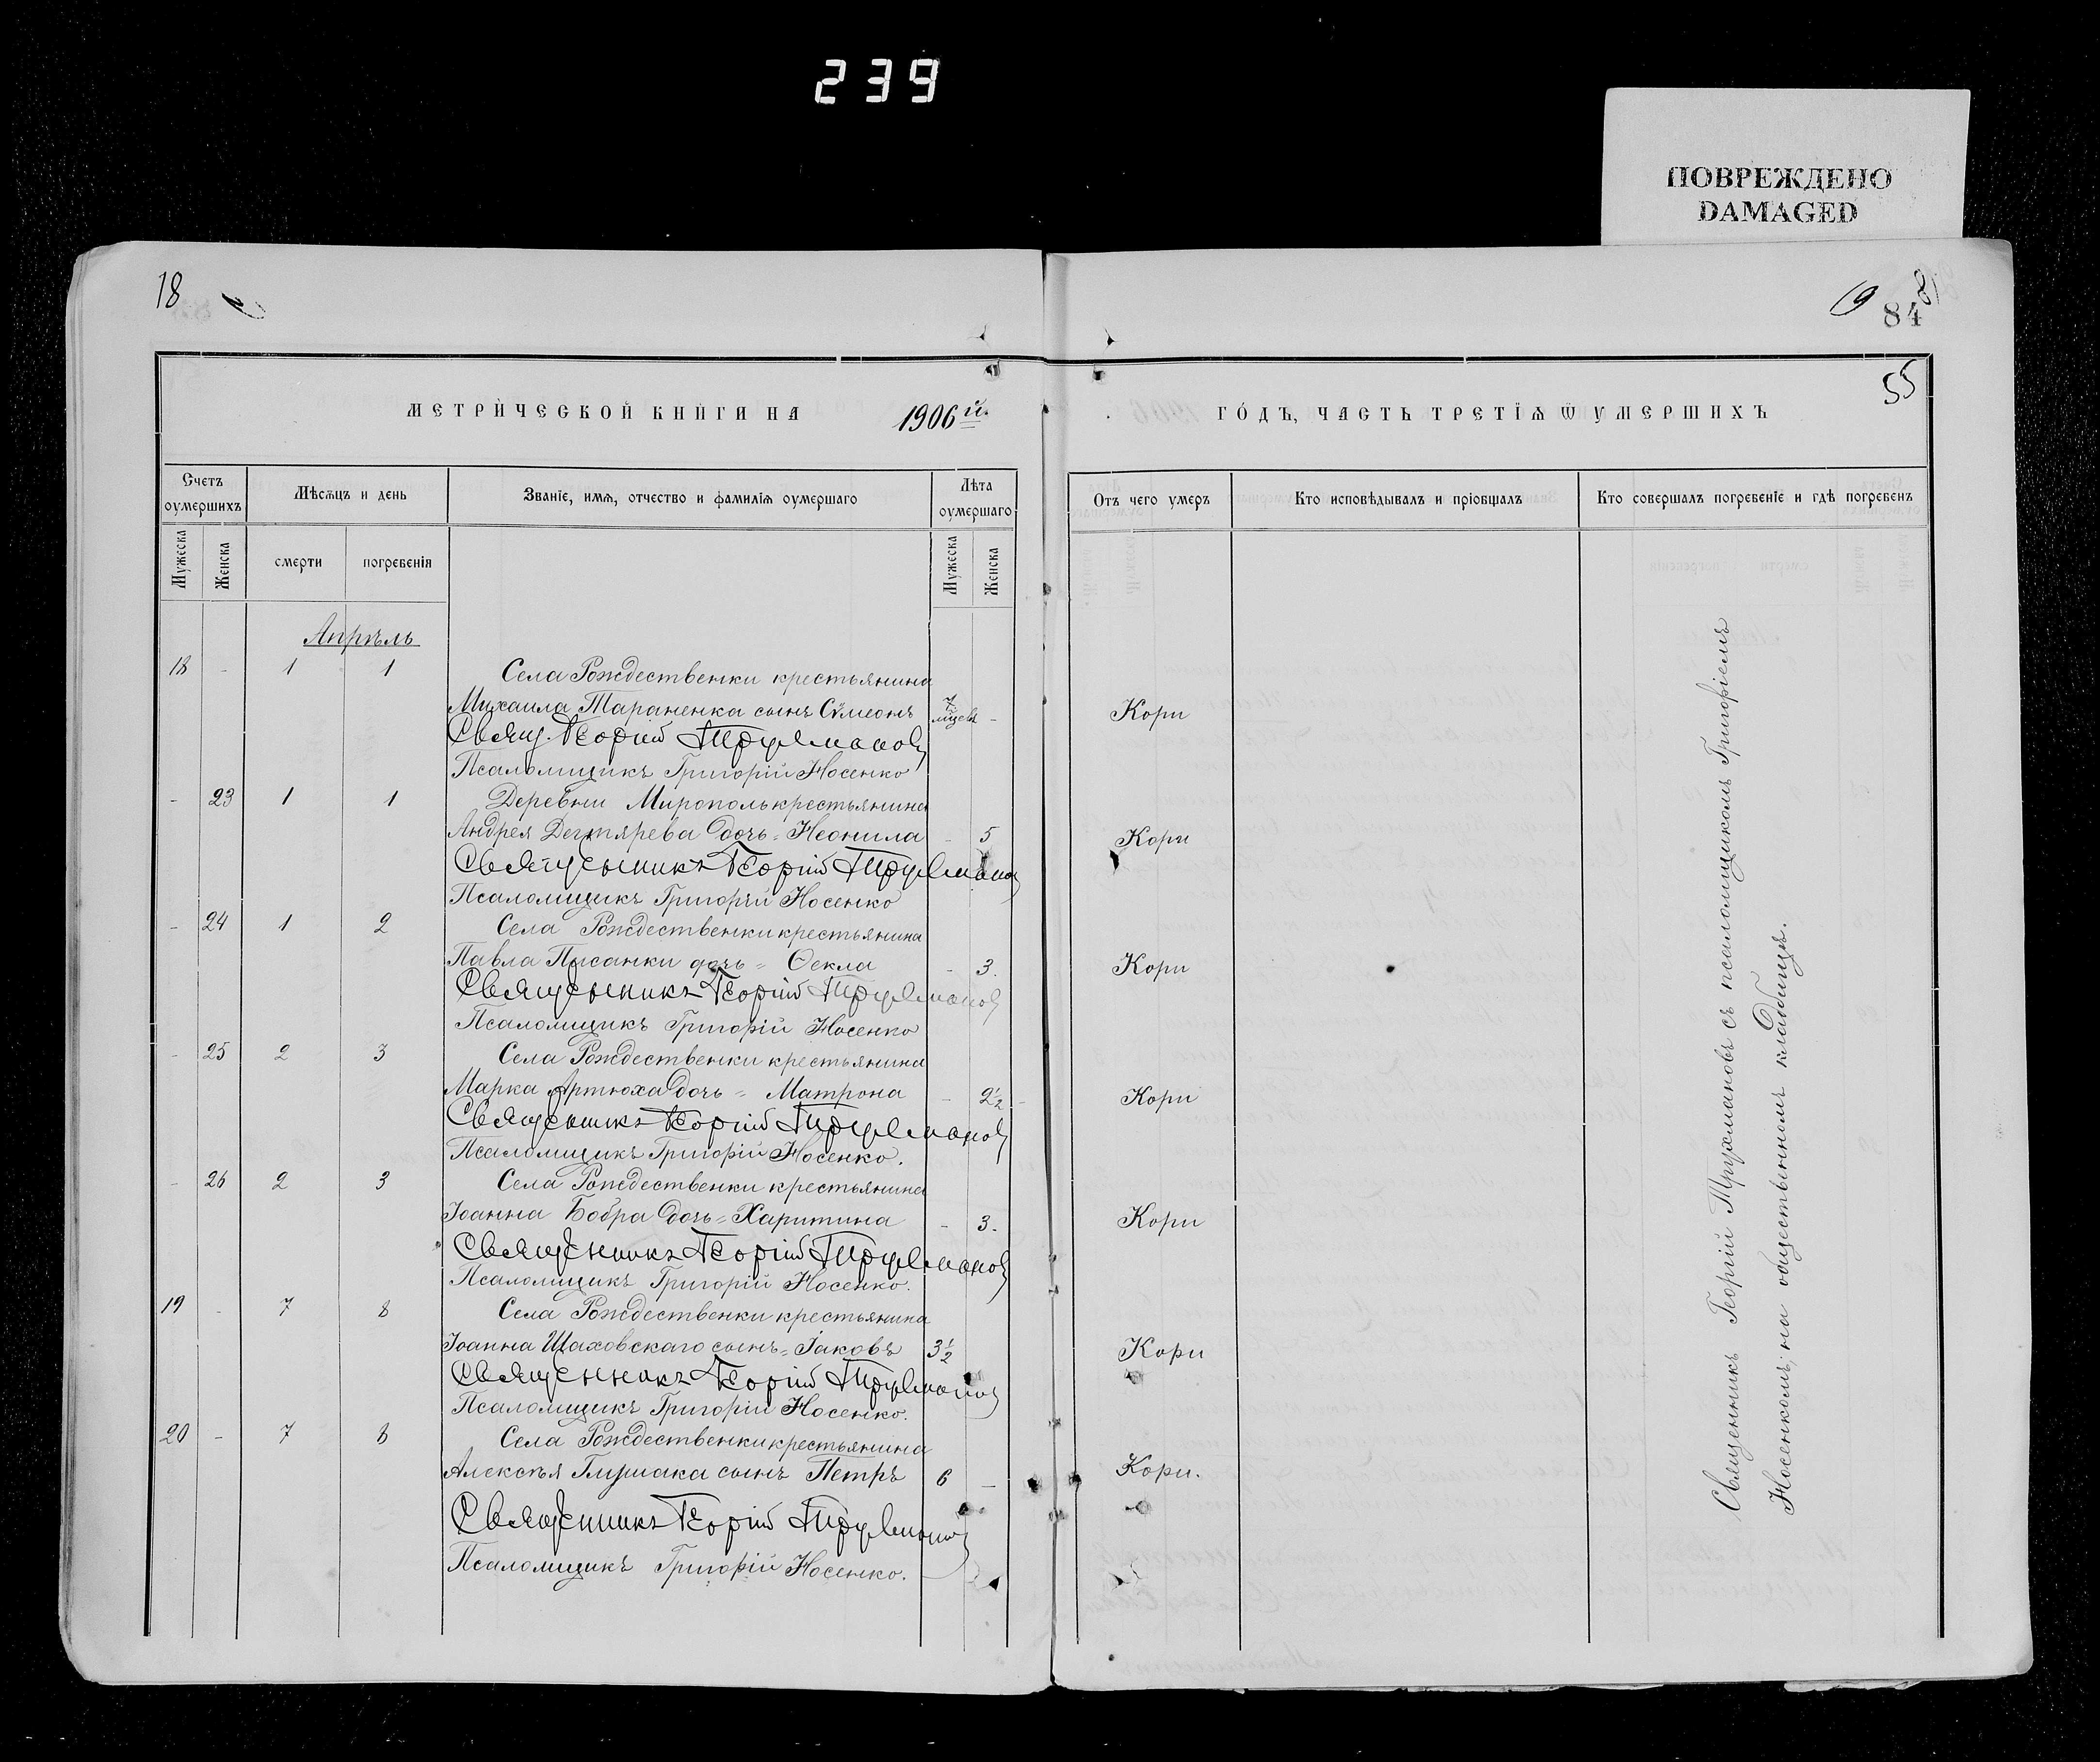 239
ПОВРЕЖДЕНО
DAMAGED
18
19
84
55
МЕТРИЧЕСКОЙ КНИГИ НА 1906й.
ГОДЪ, ЧАСТЬ ТРЕТІѦ Ѿ УМЕРШИХЪ
Счетъ оумершихъ
Мѣсѧцъ и день
Званіе, имѧ, отчество и фамиліѧ оумершаго
Лѣта оумершаго
Отъ чего умеръ
Кто исповѣдывалъ и пріобщалъ
Кто совершалъ погребеніе и гдѣ погребенъ
Мужеска
Женска
смерти
погребенія
Мужеска
Женска
Апрѣль
18 - 1 1 Села Рождественки крестьянина
Михаила Тараненка сынъ Сѵмеонъ 7 мѣсяц. - Кори
Свящ. Георгій Трухмановъ
Псаломщикъ Григорій Носенко
- 23 1 1 Деревни Мирополь крестьянина
Андрея Дегтярева дочь = Неонила - 5 Кори
Священникъ Георгій Трухмановъ
Псаломщикъ Григорій Носенко
- 24 1 2 Села Рождественки крестьянина
Павла Писанки дочь = Ѳекла - 3. Кори
Священникъ Георгій Трухмановъ
Псаломщикъ Григорій Носенко
- 25 2 3 Села Рождественки крестьянина
Марка Артюха дочь = Матрона - 2½ Кори
Священникъ Георгій Трухмановъ
Псаломщикъ Григорій Носенко.
- 26 2 3 Села Рождественки крестьянина
Іоанна Бобра дочь = Харитина - 3. Кори
Священникъ Георгій Трухмановъ
Псаломщикъ Григорій Носенко.
19 - 7 8 Села Рождественки крестьянина
Іоанна Шаховскаго сынъ = Іаковъ 3½ Кори
Священникъ Георгій Трухмановъ
Псаломщикъ Григорій Носенко.
20 - 7 8 Села Рождественки крестьянина
Алексѣя Глушака сынъ Петръ 6 - Кори.
Священникъ Георгій Трухмановъ
Псаломщикъ Григорій Носенко.
Священникъ Георгій Трухмановъ съ псаломщикомъ Григоріемъ
Носенкомъ, на общественномъ кладбищѣ.